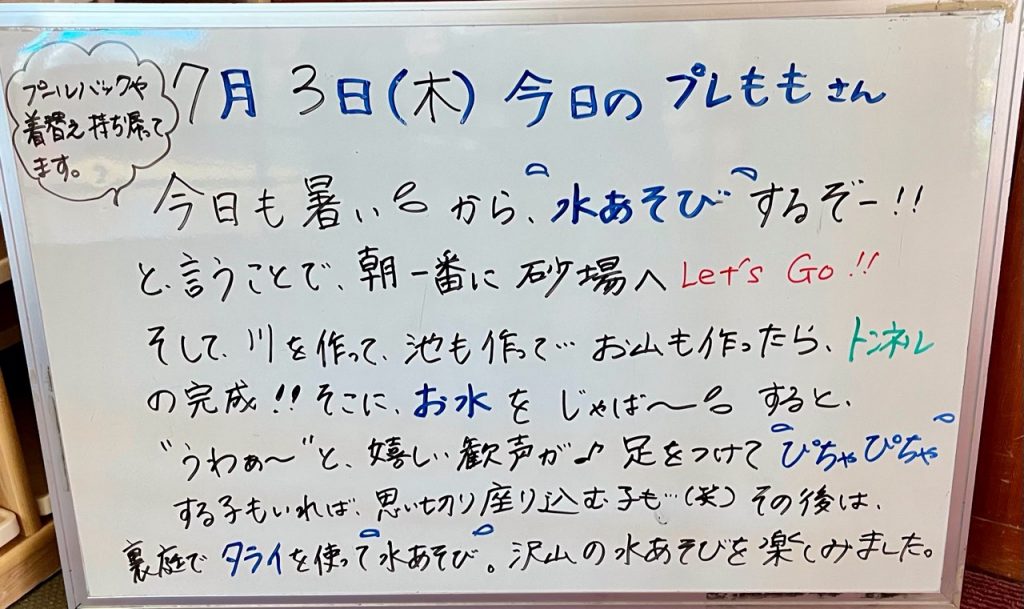 プールバックや
着替え持ち帰って
ます。
7月3日(木) 今日の プレももさん
今日も暑いから、水あそびするぞー!!
と、言うことで、朝一番に砂場へ Let's Go!!
そして、川を作って、池も作って… お山も作ったら、トンネル
の完成!! そこに、お水を じゃば〜 すると、
"うわぁ〜"と、嬉しい歓声が♪ 足をつけて ぴちゃぴちゃ
する子もいれば、思い切り座り込む子も…(笑) その後は、
裏庭で タライを使って水あそび。沢山の水あそびを楽しみました。